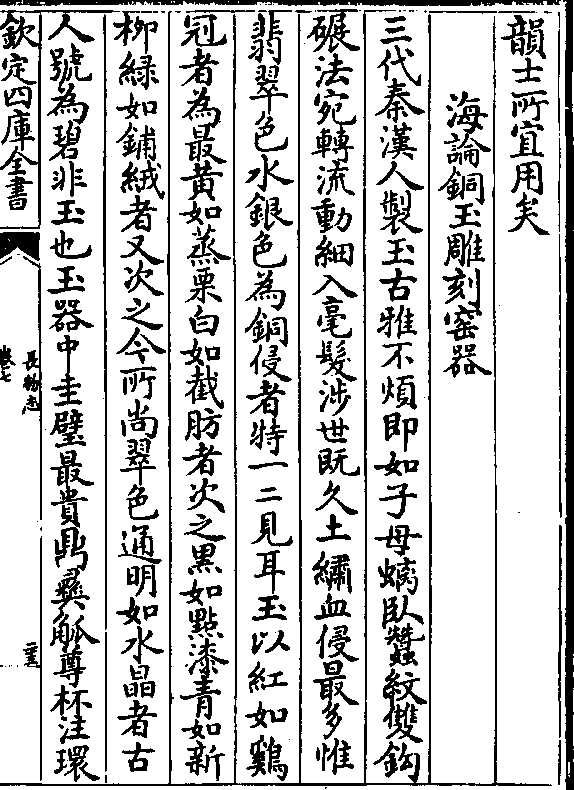 韻士所宜用矣
海論銅玉雕刻窑器
三代秦漢人製玉古雅不煩即如子母螭臥蠶紋雙鈎
碾法宛轉流動細入毫髮涉世既久土繡血侵最多惟
翡翠色水銀色為銅侵者特一二見耳玉以紅如鷄
冠者為最黄如蒸栗白如截肪者次之黒如點漆青如新
柳緑如鋪絨者又次之今所尚翠色通明如水晶者古
人號為碧非玉也玉器中圭璧最貴鼎彝觚尊杯注環
欽定四庫全書
長物志
卷七